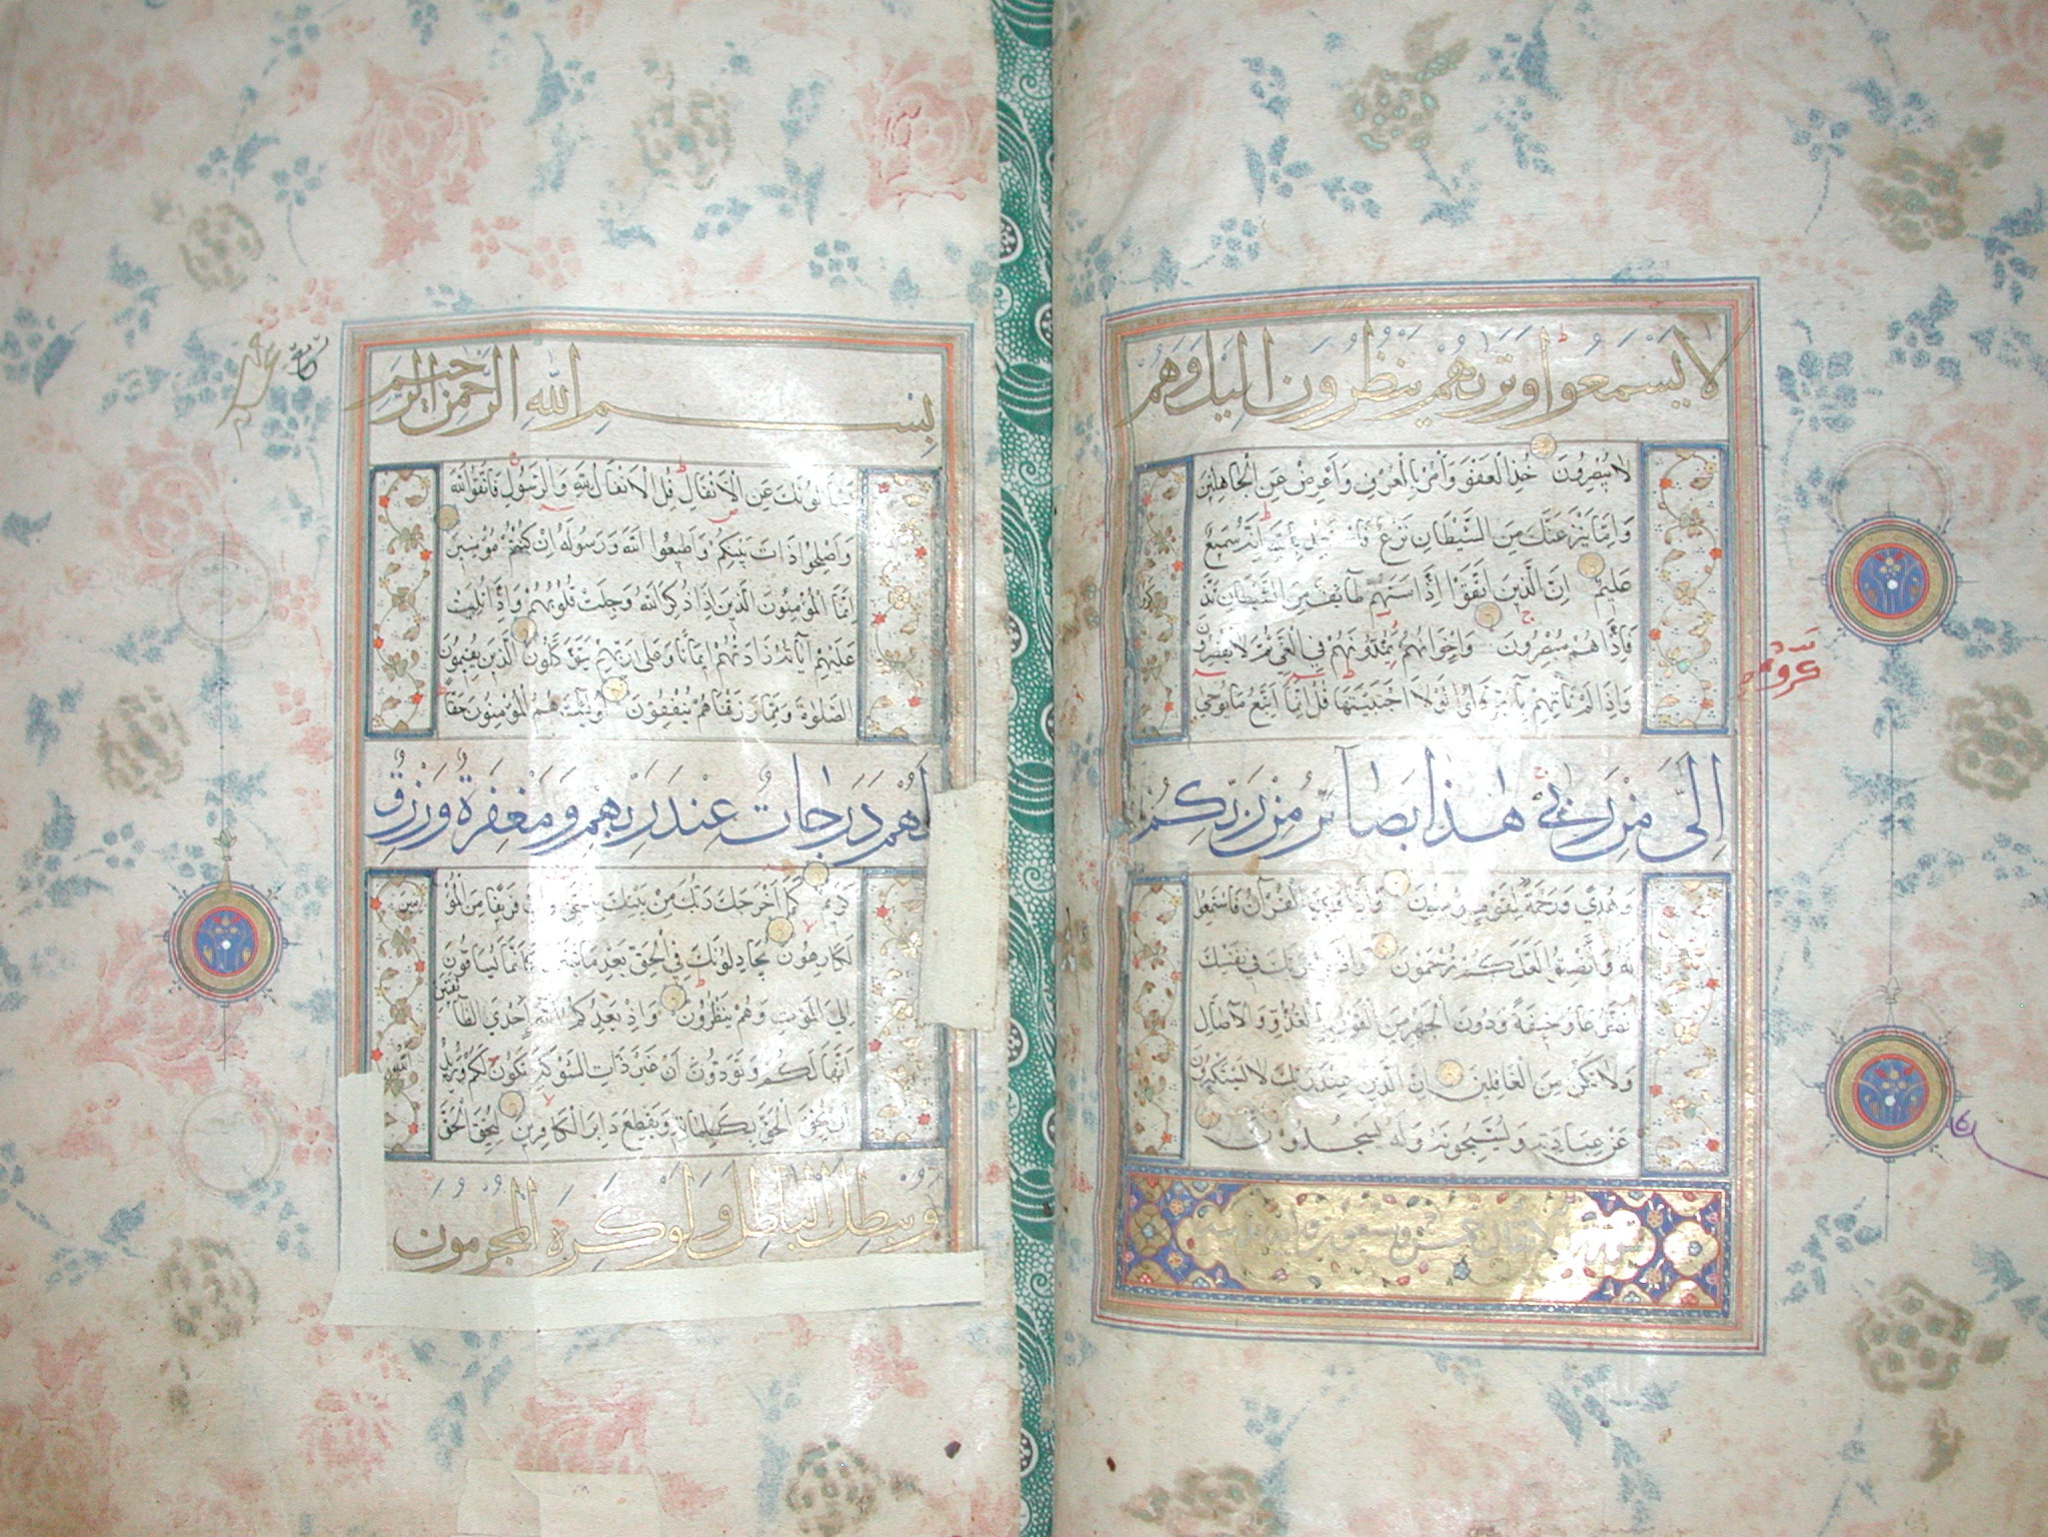 لا يسمعوا وترىهم ينظرون اليك وهم
لا يبصرون خذ العفو وأمر بالعرف وأعرض عن الجاهلين
وإما ينزغنك من الشيطان نزغ فاستعذ بالله إنه سميع
عليم إن الذين اتقوا إذا مسهم طائف من الشيطان تذ
كروا
فإذا هم مبصرون وإخوانهم يمدونهم في الغي ثم لا يقصرون
وإذا لم تأتهم بآية قالوا لولا اجتبيتها قل إنما أتبع ما يوحى
إلي من ربي هذا بصائر من ربكم
وهدى ورحمة لقوم يؤمنون وإذا قرئ القرآن فاستمعوا
له وأنصتوا لعلكم ترحمون واذكر ربك في نفسك
تضرعا وخيفة ودون الجهر من القول بالغدو والآصال
ولا تكن من الغافلين إن الذين عند ربك لا يستكبرون
عن عبادته ويسبحونه وله يسجدون
سورة الانفال
بسم الله الرحمن الرحيم
يسألونك عن الأنفال قل الأنفال لله والرسول فاتقوا الله
وأصلحوا ذات بينكم وأطيعوا الله ورسوله إن كنتم مؤمنين
إنما المؤمنون الذين إذا ذكر الله وجلت قلوبهم وإذا تليت
عليهم آياته زادتهم إيمانا وعلى ربهم يتوكلون الذين يقيمون
الصلوة ومما رزقناهم ينفقون أولئك هم المؤمنون حقا
لهم درجات عند ربهم ومغفرة ورزق
كريم كما أخرجك ربك من بيتك بالحق وإن فريقا من المؤ
منين
لكارهون يجادلونك في الحق بعد ما تبين كأنما يساقون
إلى الموت وهم ينظرون وإذ يعدكم الله إحدى الطا
ئفتين
أنها لكم وتودون أن غير ذات الشوكة تكون لكم ويريد
الله
أن يحق الحق بكلماته ويقطع دابر الكافرين ليحق الحق
ويبطل الباطل ولو كره المجرمون